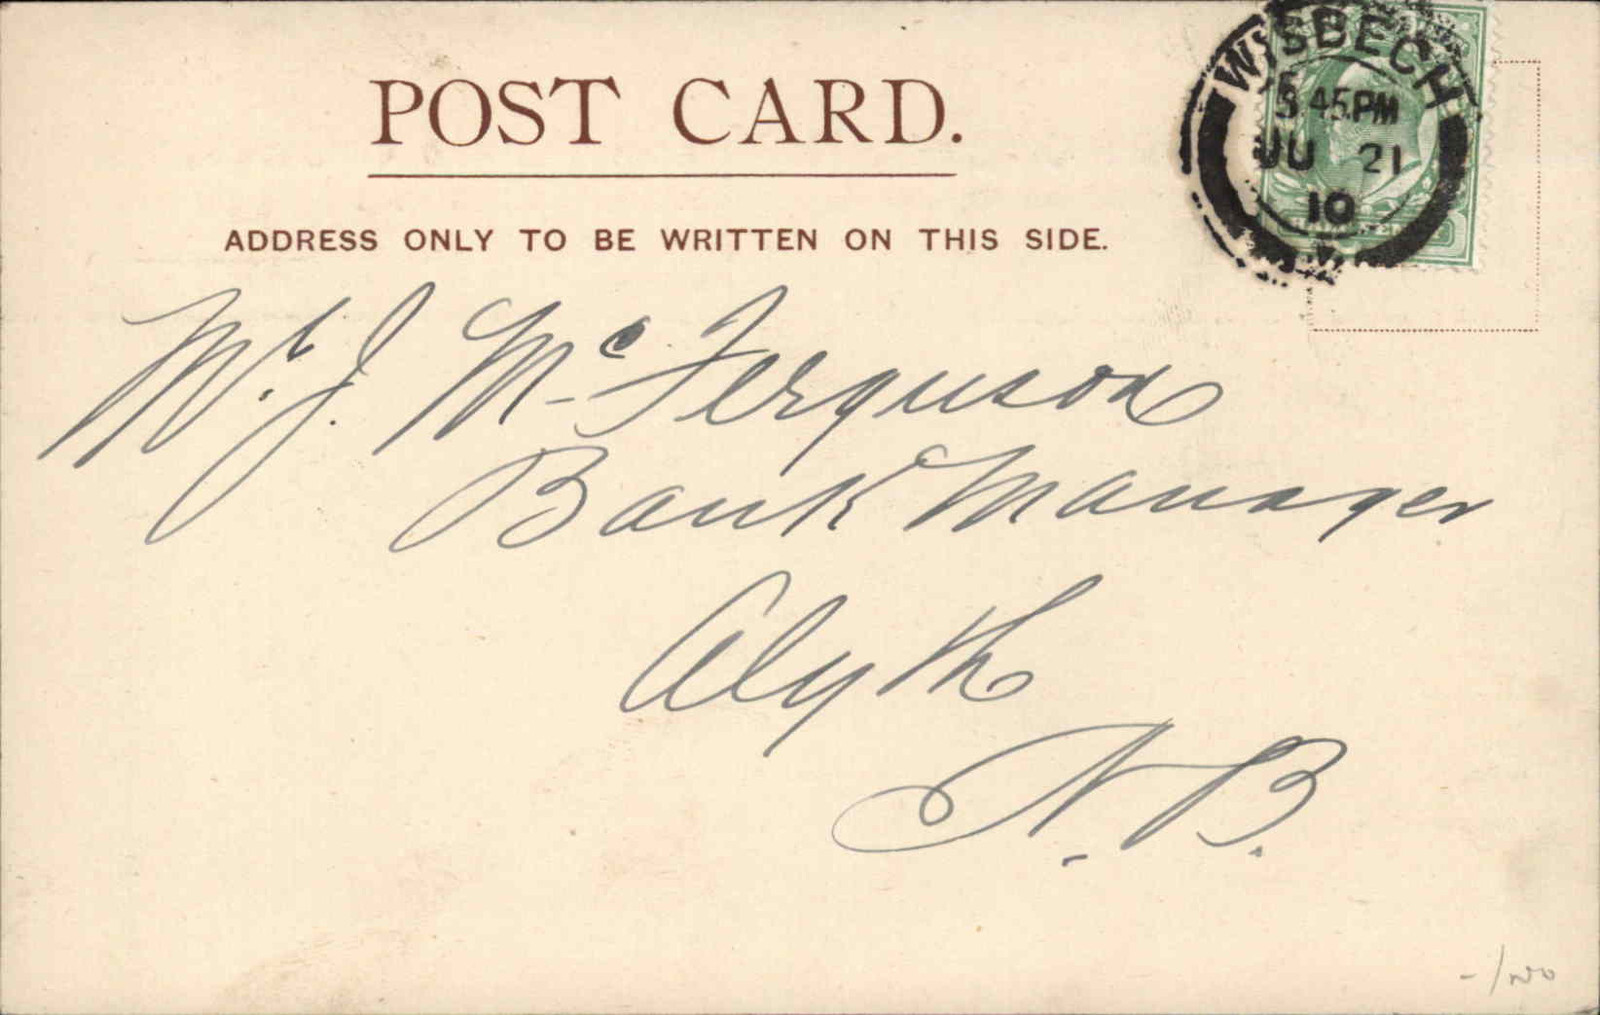 POST CARD.
ADDRESS ONLY TO BE WRITTEN ON THIS SIDE.
WISBECH
8 45 PM
JU 21
10
Mr. J. Mc Ferguson
Bank Manager
Alyth
N.B.